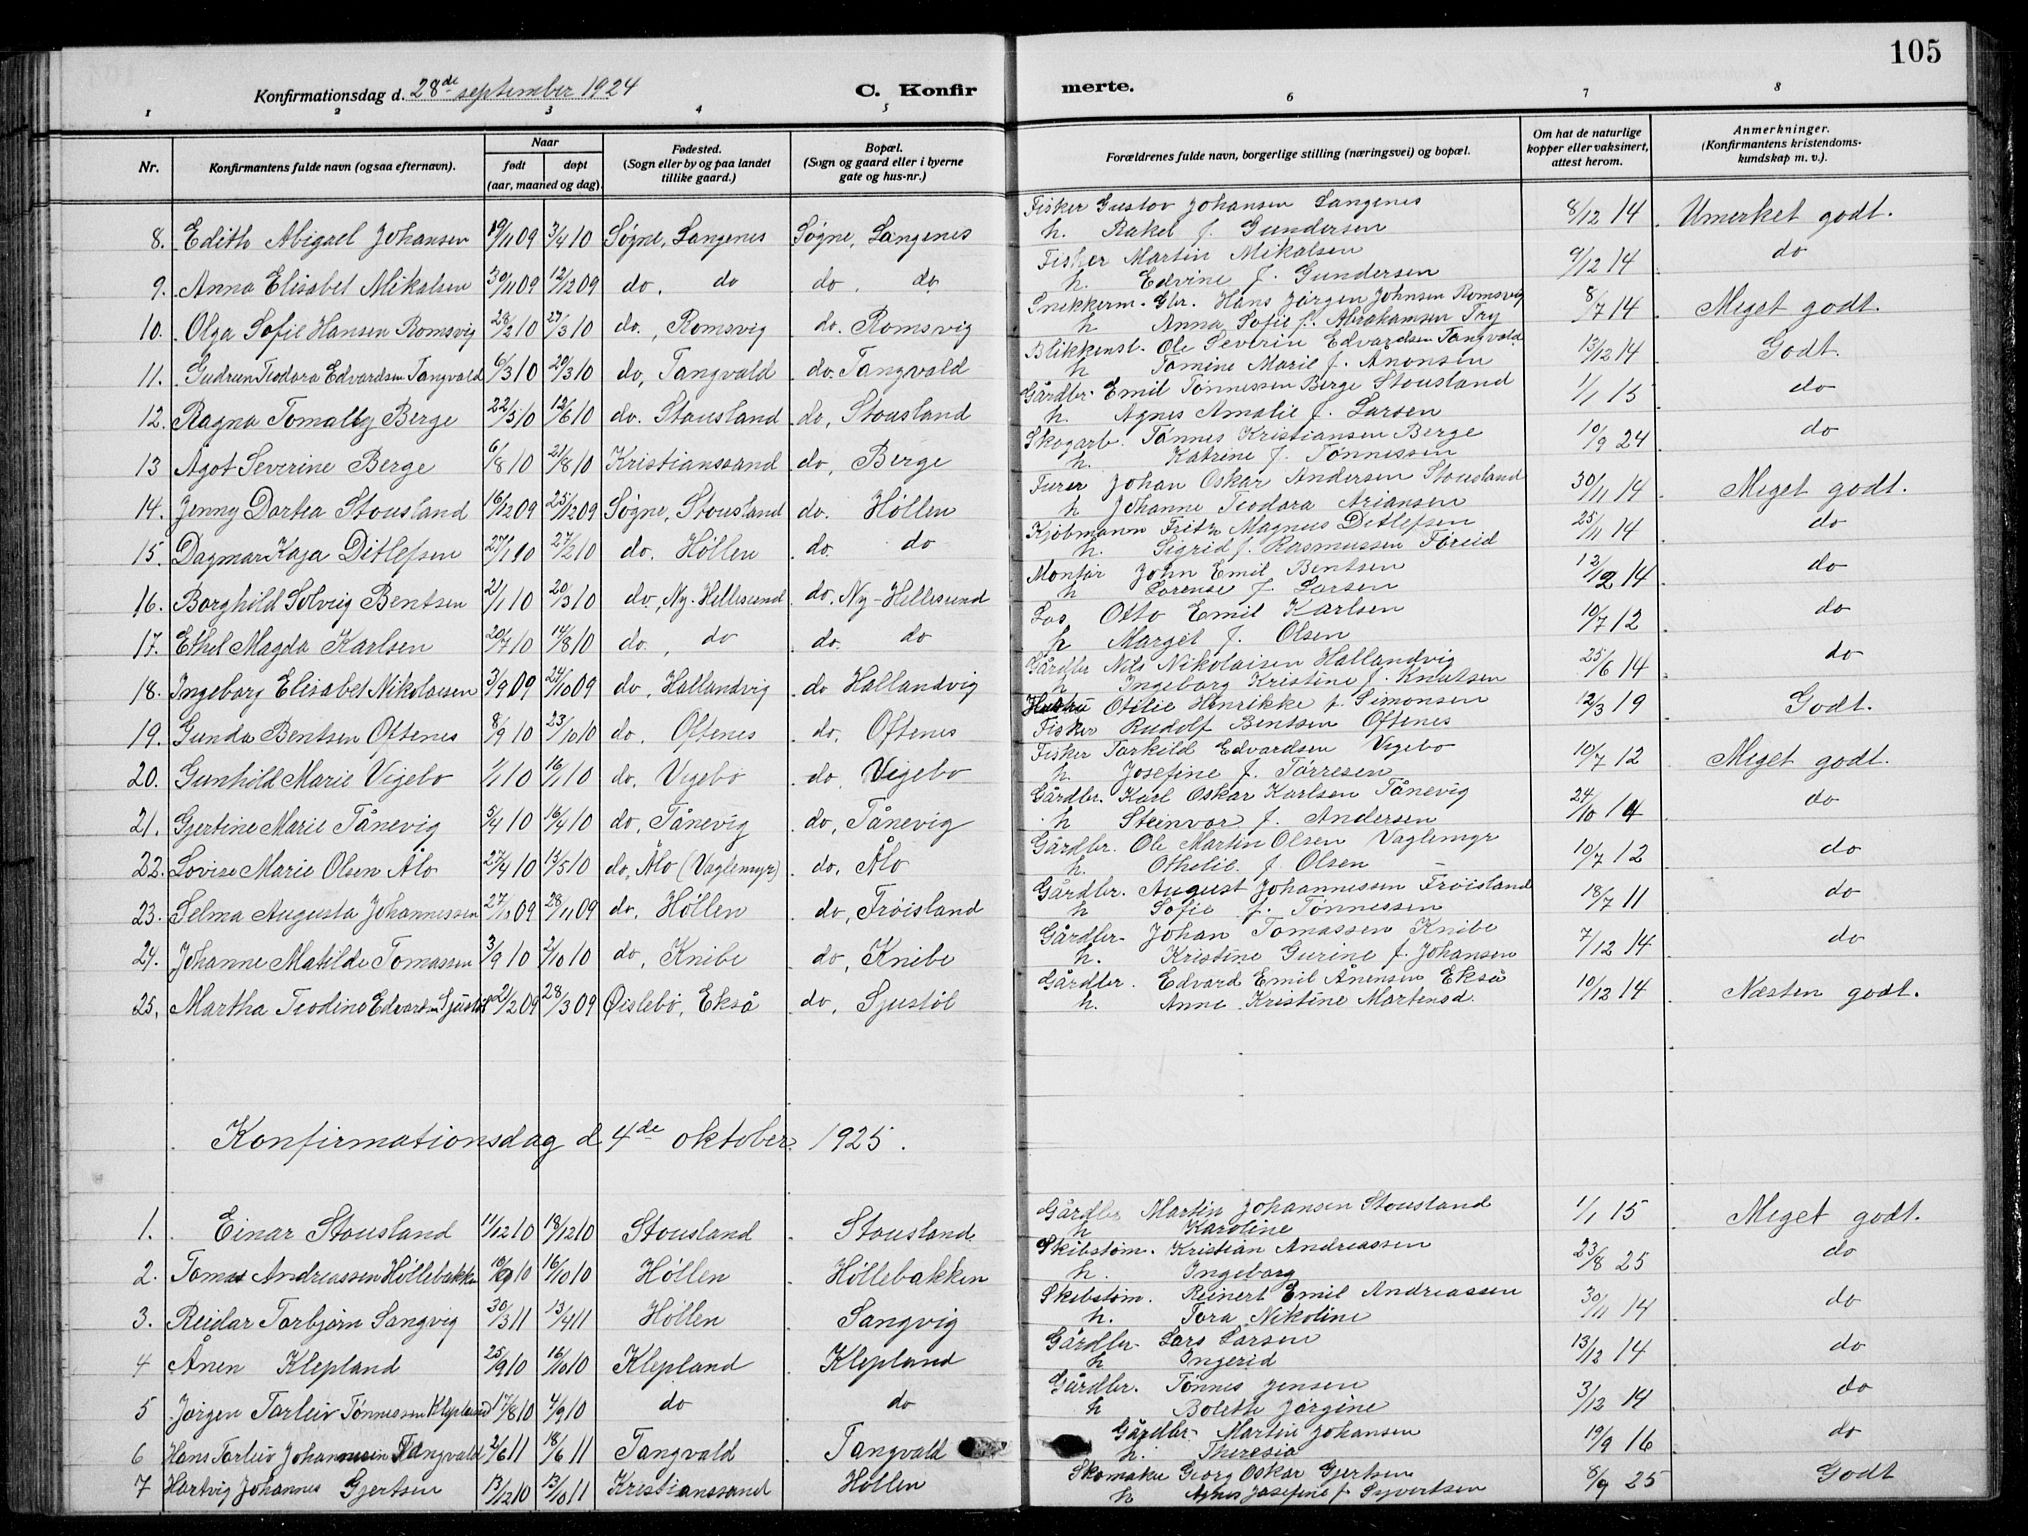 105
Konfirmationsdag d. 28de september 1924 C. Konfir merte.
1 2 3 4 5 6 7 8
Nr. Konfirmantens fulde navn (ogsaa efternavn). Naar født døpt (aar, maaned og dag). Fødested. (Sogn eller by og paa landet tillike gaard.) Bopæl. (Sogn og gaard eller i byerne gate og hus-nr.) Forældrenes fulde navn, borgerlige stilling (næringsvei) og bopæl. Om hat de naturlige kopper eller vaksinert, attest herom. Anmerkninger. (Konfirmantens kristendoms-kundskap m. v.).
8. Edith Abigael Johansen 19/11 09 3/4 10 Søgne, Langenes Søgne, Langenes Fisker Gustav Johansen Langenes 8/12 14 Umerket godt.
h. Rakel f. Gundersen
9. Anna Elisabet Mikalsen 30/11 09 12/12 09 do, do do, do Fisker Martin Mikalsen 9/12 14 do
h. Edvine f. Gundersen
10. Olga Sofie Hansen Romsvig 28/2 10 27/3 10 do, Romsvig do. Romsvig Snekkerm. Gbr. Hans Jørgen Johnsen Romsvig 8/7 14 Meget godt.
h Anna Sofie f. Abrahamsen Try
11. Gudrun Teodora Edvardsen Tangvald 6/3 10 20/3 10 do, Tangvald do. Tangvald Blikkensl. Ole Severin Edvardsen Tangvald 13/12 14 Godt.
h Tomine Marie f. Anonsen
12. Ragna Tomally Berge 22/5 10 12/6 10 do. Stousland do, Stousland Gårdbr. Emil Tønnessen Berge Stousland 1/1 15 do
h. Agnes Amalie f. Larsen
13 Agot Severine Berge 6/8 10 21/8 10 Kristianssand do, Berge Skogarb. Tønnes Kristiansen Berge 10/9 24 do
h. Katrine f. Tønnessen
14. Jenny Dortea Stousland 16/12 09 25/12 09 Søgne, Stousland do. Høllen Furer Johan Oskar Andersen Stousland 30/11 14 Meget godt.
h Johanne Teodora Ariansen
15. Dagmar Kaja Ditlefsen 27/1 10 27/2 10 do, Høllen do. do Kjøbmann Fritz Magnus Ditlefsen 25/11 14 do
h. Sigrid f. Rasmussen Føreid
16. Borghild Solveig Bentsen 21/1 10 20/3 10 do, Ny-Hellesund do, Ny-Hellesund Montør John Emil Bentsen 12/12 14 do
h Lorense f. Larsen
17. Ethel Magda Karlsen 20/7 10 14/8 10 do. do do. do Los Otto Emil Karlsen 10/7 12 do
h Marget f. Olsen
18. Ingeborg Elisabet Nikolaisen 3/9 09 24/10 09 do, Hallandvig do Hallandvig Gårdbr Nils Nikolaisen Hallandvig 25/6 14 do
h Ingeborg Kristine f. Knutsen
19. Gunda Bentsen Oftenes 8/9 10 23/10 10 do, Oftenes do, Oftenes Hustru Otilie Henrikke f. Simonsen 12/3 19 Godt.
Fisker Rudolf Bentsen Oftenes
20. Gunhild Marie Vigebo 1/1 10 16/1 10 do, Vigebo do, Vigebo Fisker Tarkild Edvardsen Vigebo 10/7 12 Meget godt.
h. Josefine f. Tørresen
21. Gjertine Marie Tånevig 5/4 10 16/4 10 do, Tånevig do, Tånevig Gårdbr. Karl Oskar Karlsen Tånevig 24/10 14 do
h Steinvor f. Andersen
22. Lovise Marie Olsen Ålo 27/4 10 13/5 10 do, Ålo (Vaglemyr) do, Ålo Gårdbr. Ole Martin Olsen Vaglemyr 10/7 12 do
h. Othelie f. Olsen
23. Selma Augusta Johannessen 27/10 09 28/11 09 do, Høllen do, Frøisland Gårdbr. August Johannessen Frøisland 18/7 11 do
h Sofie f. Tønnessen
24. Johanne Matilde Tomassen 3/9 10 2/10 10 do, Knibe do, Knibe Gårdbr. Johan Tomassen Knibe 7/12 14 do
h. Kristine Gurine f. Johansen
25. Martha Teodine Edvardsen Sjustøl 21/2 09 28/3 09 Øislebø, Ekså do, Sjustøl Gårdbr. Edvard Emil Ånensen Ekså 10/12 14 Næsten godt.
h. Anne Kristine Martensd.
Konfirmationsdag d. 4de oktober 1925.
1. Einar Stousland 11/12 10 18/12 10 Stousland Stousland Gårdbr Martin Johansen Stousland 1/1 15 Meget godt.
h Karoline
2. Tomas Andreassen Høllebakken 10/9 10 16/10 10 Høllen Høllebakken Skibstøm. Kristian Andreassen 23/8 25 do
h. Ingeborg
3. Reidar Torbjørn Sangvig 30/3 11 13/4 11 Høllen Sangvig Skibstøm. Reinert Emil Andreassen 30/11 14 do
h. Tora Nikoline
4 Ånen Klepland 25/9 10 16/10 10 Klepland Klepland Gårdbr Lars Larsen 13/12 14 do
h Ingerid
5 Jørgen Tarleiv Tønnessen Klepland 17/8 10 4/9 10 do do Gårdbr. Tønnes Jensen 3/12 14 do
h Bolette Jørgine
6 Hans Tarleiv Johannesen Tangvald 2/6 11 18/6 11 Tangvald Tangvald Gårdbr Martin Johansen 19/9 16 do
h. Theresia
7 Hartvig Johannes Gjertsen 13/12 10 13/10 11 Kristianssand Høllen Skomaker Georg Oskar Gjertsen 8/9 25 Godt
h Agnes Josefine f. Syvertsen